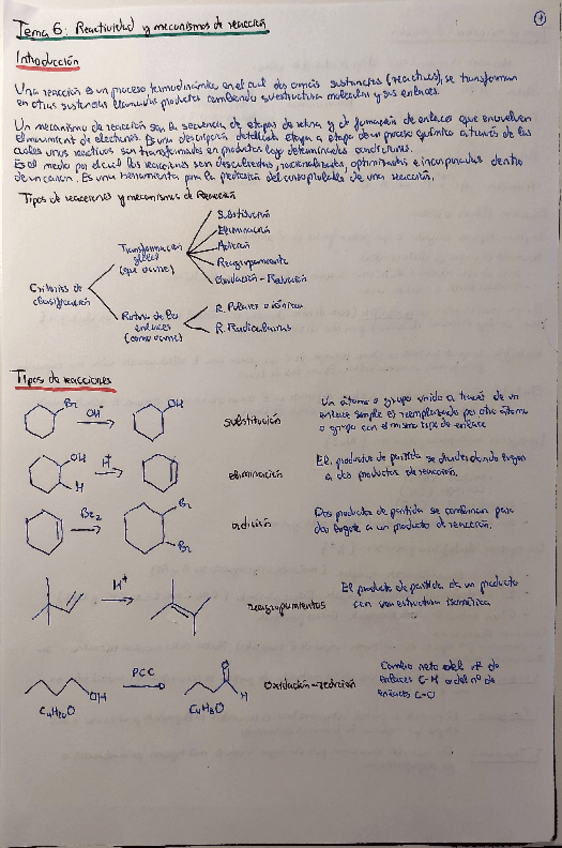 Tema 6: Reactividad y mecanismos de reacción
1
Introducción
Una reacción es un proceso termodinámico en el cual dos o más sustancias (reactivos), se transforman
en otras sustancias llamadas productos cambiando su estructura molecular y sus enlaces.
Un mecanismo de reacción son la secuencia de etapas de rotura y de formación de enlaces que envuelven
el movimiento de electrones. Es una descripción detallada etapa a etapa de un proceso químico a través de las
cuales unos reactivos son transformados en productos bajo determinadas condiciones.
Es el medio por el cual las reacciones son descubiertas, racionalizadas, optimizadas e incorporadas dentro
de un canon. Es una herramienta para la predicción del curso probable de una reacción.
Tipos de reacciones y mecanismos de Reacción
Substitución
Eliminación
Adición
Reagrupamiento
Oxidación-Reducción
Transformación
global
(qué ocurre)
Criterios de
clasificación
Rotura de los
enlaces
(como ocurre)
R. Polares o iónicas
R. Radicalarias
Tipos de reacciones
Br
OH⁻
OH
substitución
Un átomo o grupo unido a través de un
enlace simple es reemplazado por otro átomo
o grupo con el mismo tipo de enlace
OH
H
H⁺
eliminación
El productos de partida se divide dando lugar
a dos productos de reacción.
Br₂
Br
Br
adición
Dos productos de partida se combinan para
dar lugar a un producto de reacción.
H⁺
reagrupamientos
El producto de partida da un producto
con una estructura isomérica
OH
C₄H₁₀O
PCC
O
H
C₄H₈O
Oxidación-redución
Cambio neto del nº de
enlaces C-H o del nº de
enlaces C-O